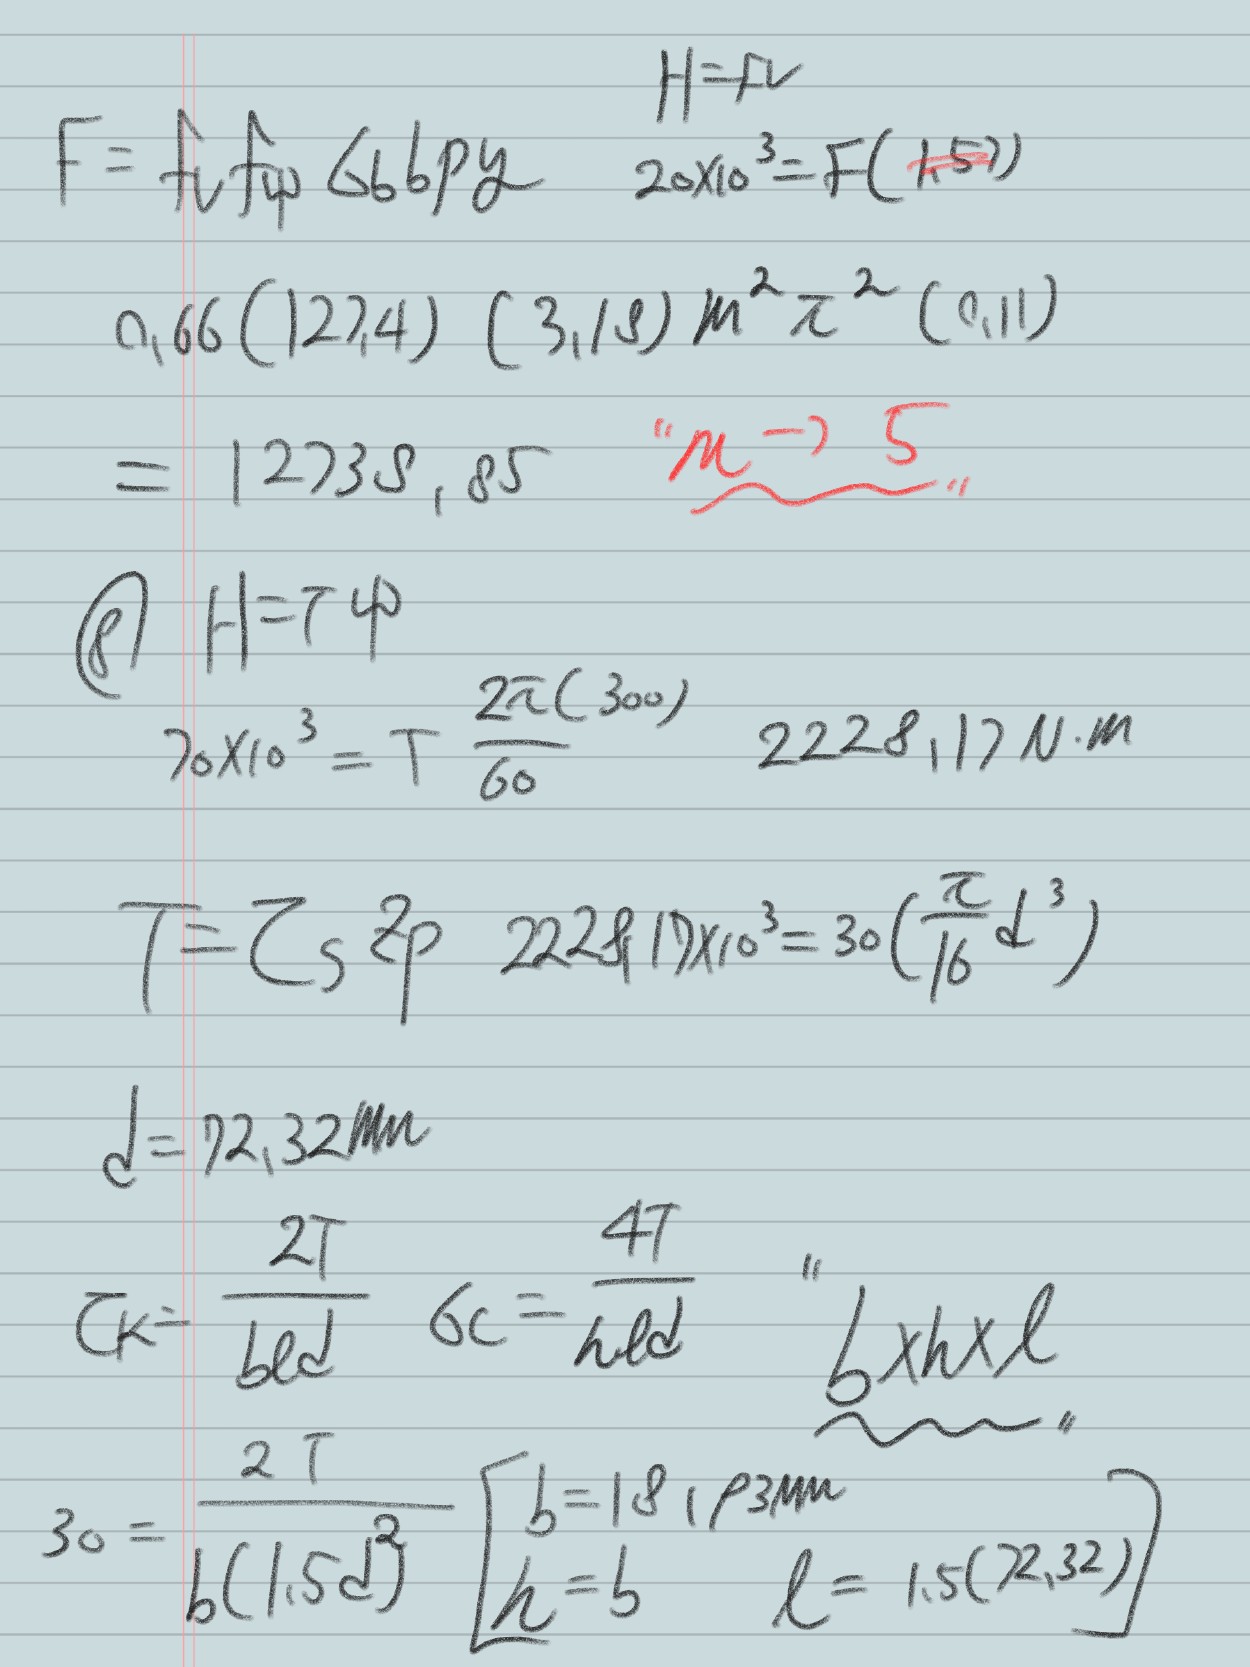 H=Fv
F = fv fw σb b p y
20×10³ = F(1.57)
0.66(127.4) (3.18) m² π² (0.11)
= 12738.85 "m → 5"
8) H=Tω
70×10³ = T 2π(300)/60 2228.17 N·m
T = τs Zp 2228.17×10³ = 30(π/16 d³)
d = 72.32mm
τk = 2T/bld σc = 4T/hld "b×h×l"
30 = 2T/b(1.5d²) [b=18.93mm
h=b l = 1.5(72.32)]